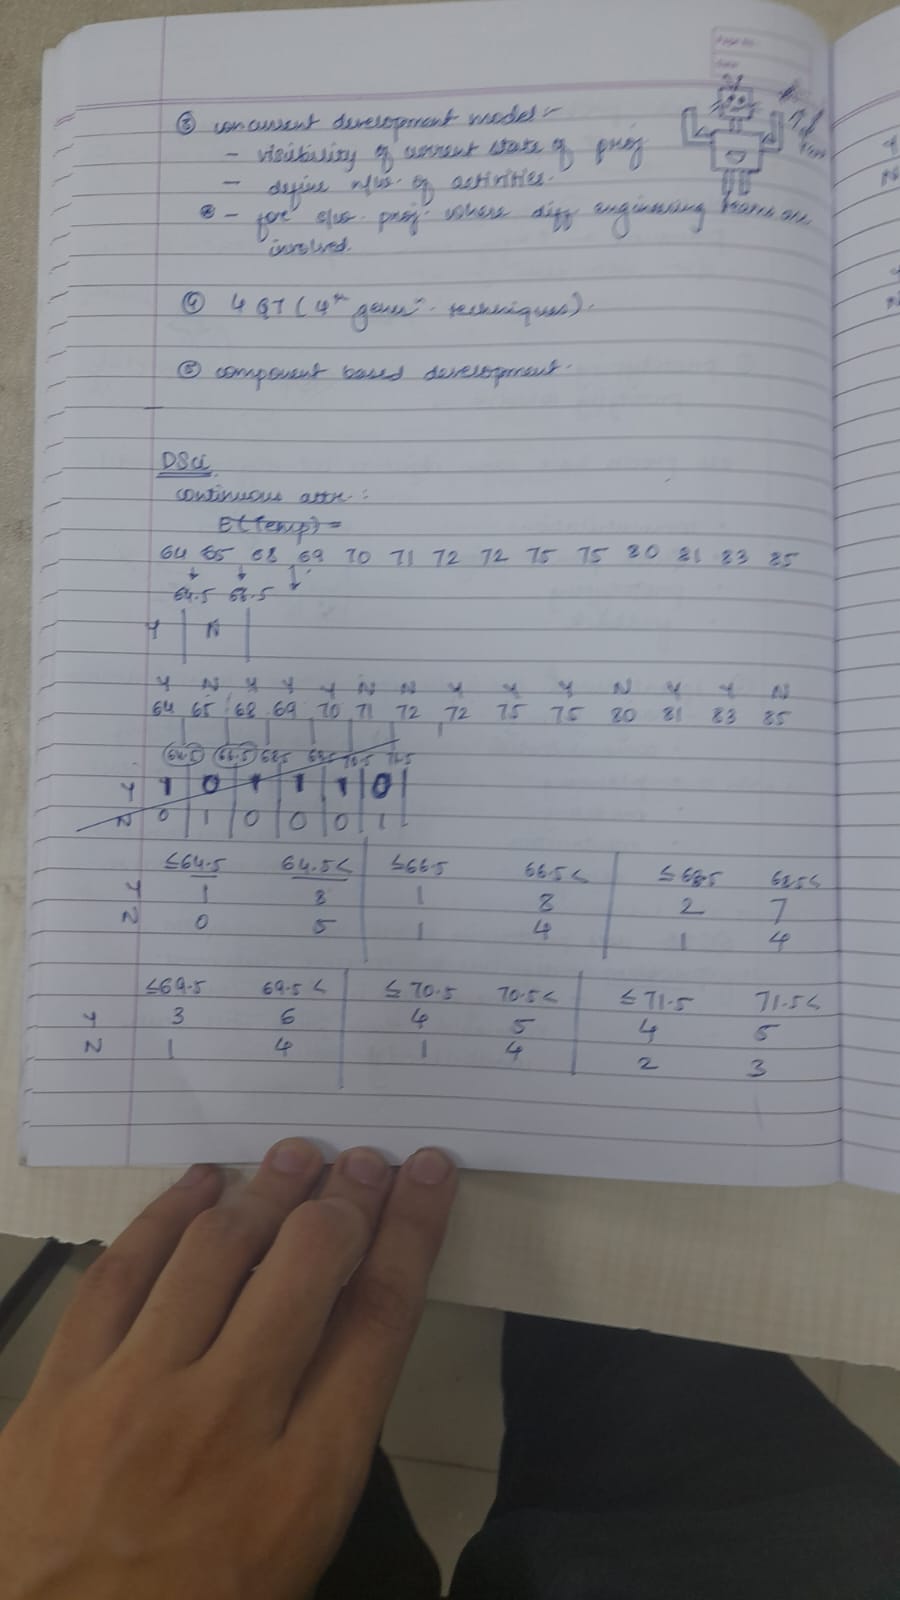 Page No.
Date
③ concurrent development model :-
- visibility of current state of proj
- define n/w. of activities.
- for s/w. proj. where diff engineering teams are
involved.
④ 4 GT (4th gener^n. techniques).
⑤ component based development.
DSci
continuous attr. :
E(Temp) =
64 65 68 69 70 71 72 72 75 75 80 81 83 85
64.5 66.5
Y N
Y N Y Y Y N N Y Y Y N Y Y N
64 65 68 69 70 71 72 72 75 75 80 81 83 85
64.5 66.5 68.5 69.5 70.5 71.5
Y 1 0 1 1 1 0
N 0 1 0 0 0 1
≤64.5 64.5< ≤66.5 66.5< ≤68.5 68.5<
Y 1 8 1 8 2 7
N 0 5 1 4 1 4
≤69.5 69.5< ≤70.5 70.5< ≤71.5 71.5<
Y 3 6 4 5 4 5
N 1 4 1 4 2 3